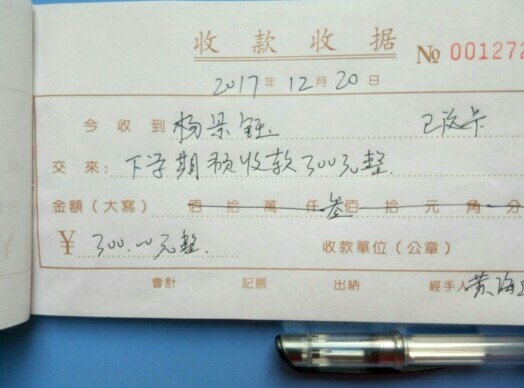 收款收据 No 001272
2017年12月20日
今收到 杨景钰 已返卡
交來: 下学期预收款300元整.
金額(大寫) 佰拾萬仟叁佰拾元角分
¥ 300.00元整. 收款單位(公章)
會計 記賬 出納 經手人 黄海